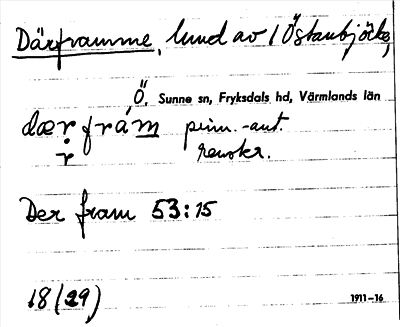 Därframme, lund av 1 Östanbjörke,
Ö. Sunne sn, Fryksdals hd, Värmlands län
dær frám pinn.-ant.
r renskr.
Der fram 53:15
18 (29) 1911-16